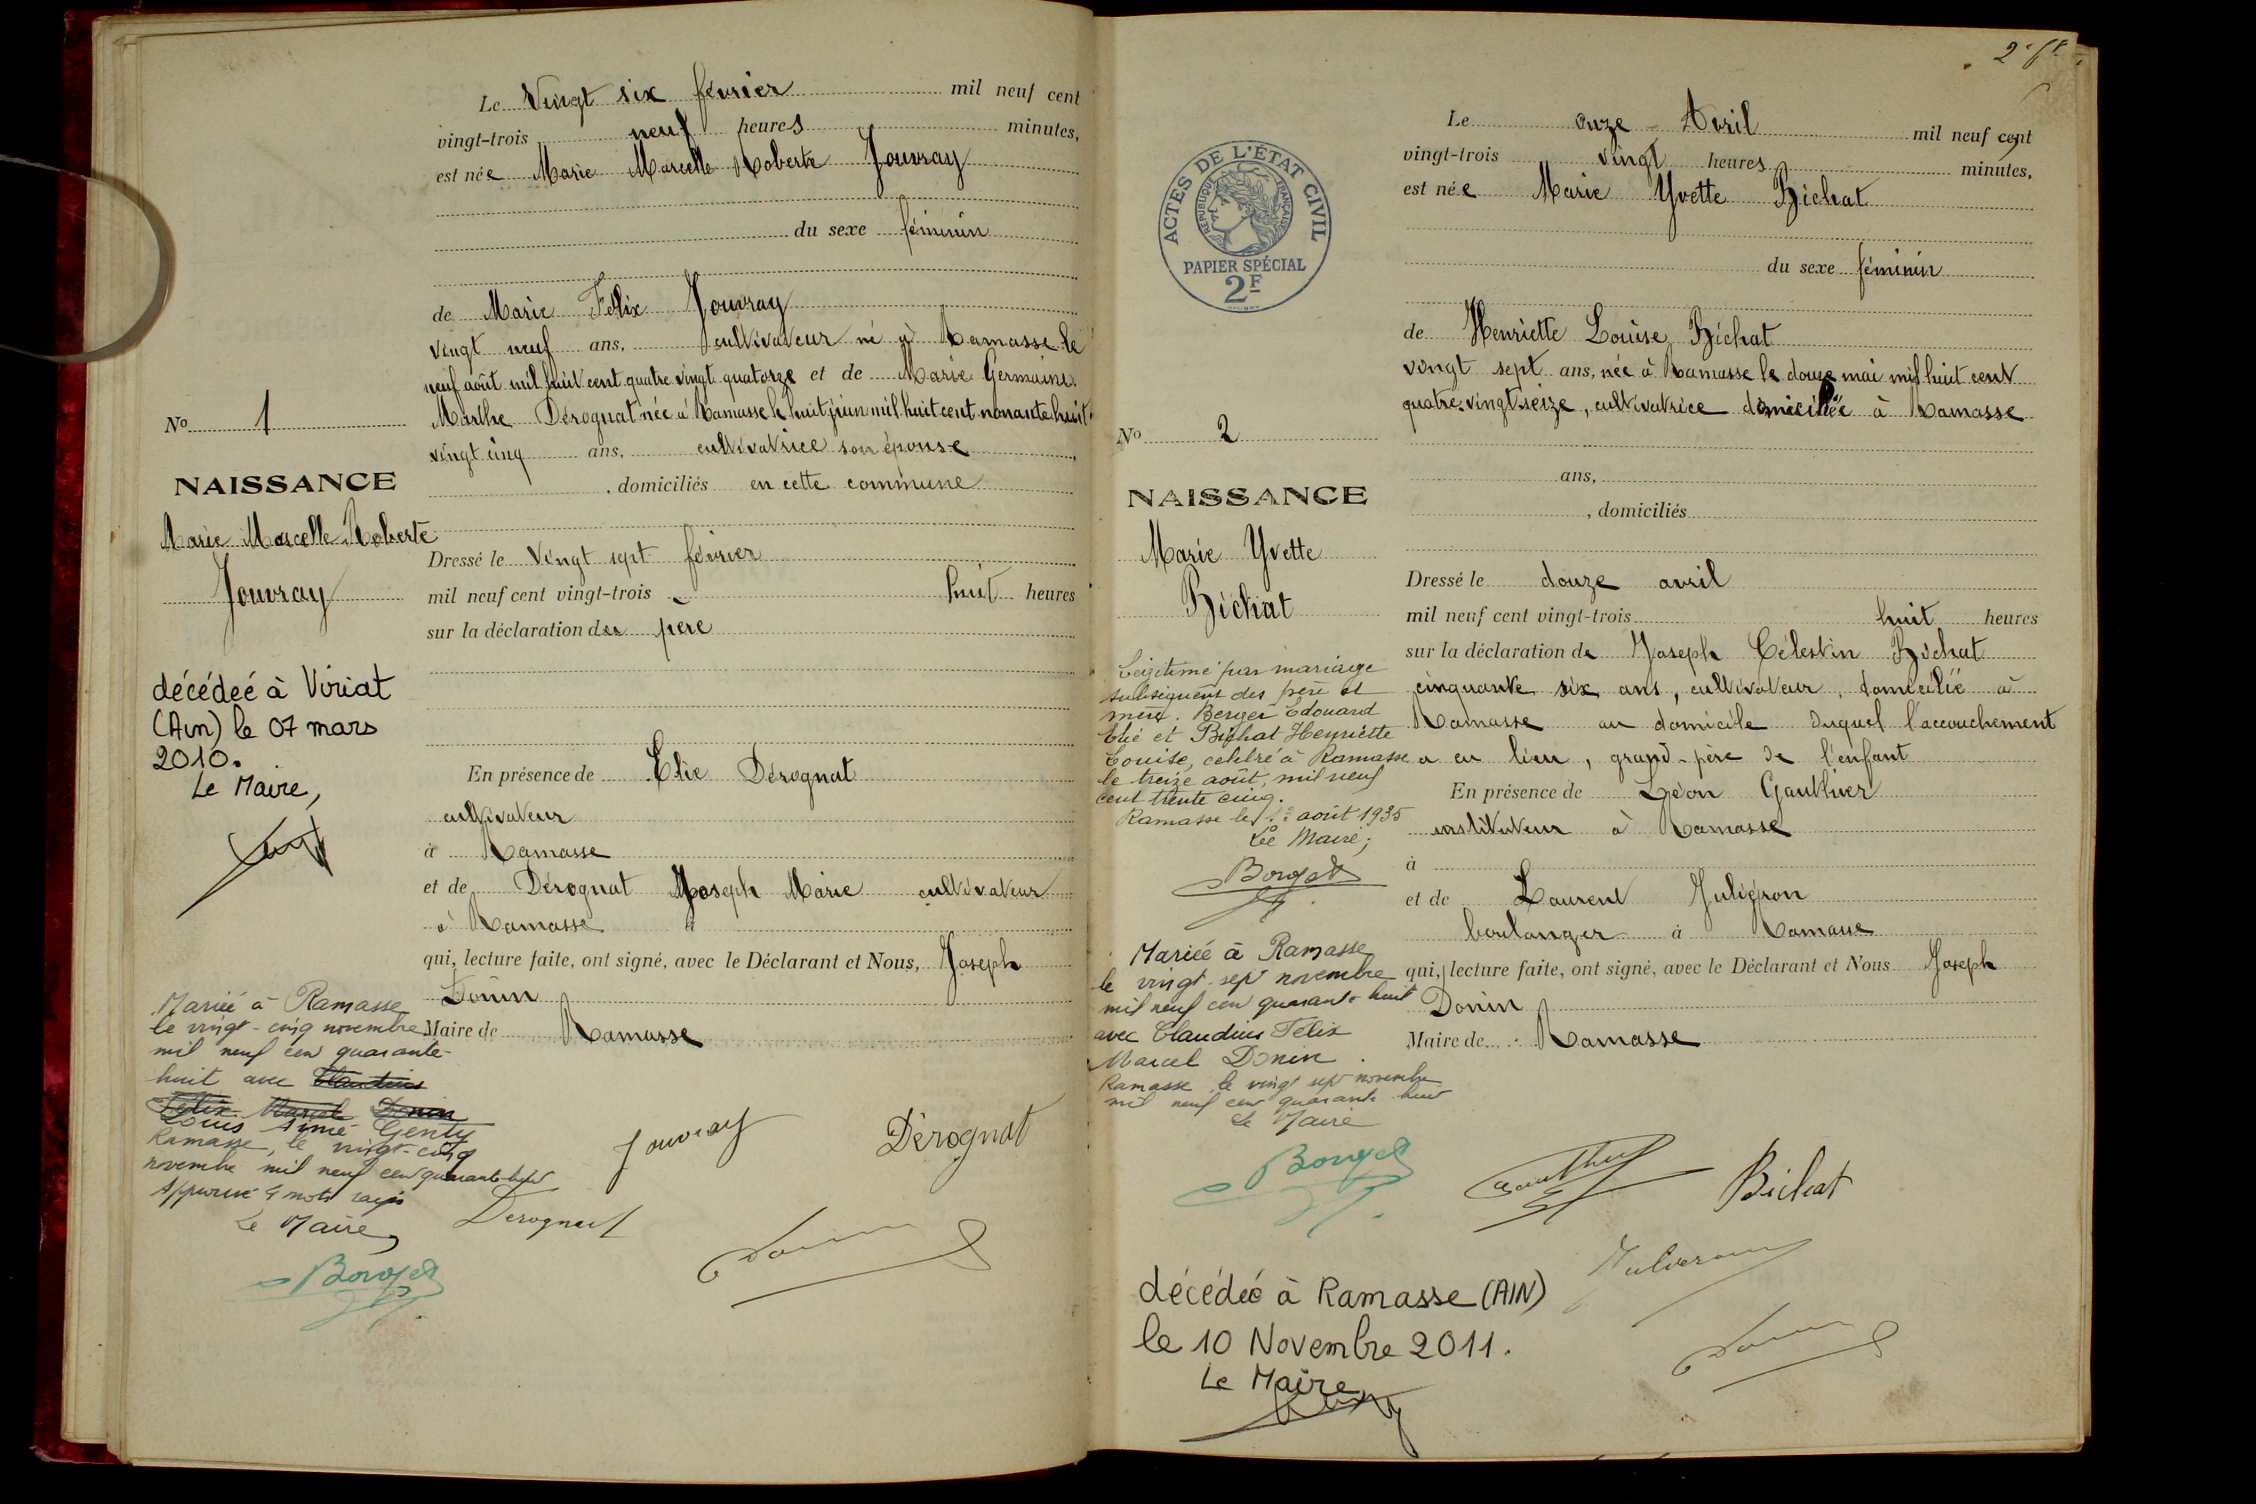 Le Vingt six février mil neuf cent
vingt-trois neuf heures minutes,
est née Marie Marcelle Roberte Jouvray
du sexe féminin
de Marie Félix Jouvray
vingt neuf ans, cultivateur né à Ramasse le
neuf août mil huit cent quatre vingt quatorze et de Marie Germaine
Marthe Dérognat née à Ramasse le huit juin mil huit cent nonante huit
vingt cinq ans, cultivatrice son épouse
, domiciliés en cette commune
No 1
NAISSANCE
Marie Marcelle Roberte
Jouvray
Dressé le vingt sept février
mil neuf cent vingt-trois huit heures
sur la déclaration du père
décédeé à Viriat
(Ain) le 07 mars
2010.
Le Maire,
En présence de Elie Dérognat
cultivateur
à Ramasse
et de Dérognat Joseph Marie cultivateur
à Ramasse à
qui, lecture faite, ont signé, avec le Déclarant et Nous, Joseph
Donin
Maire de Ramasse
Mariée à Ramasse
le vingt-cinq novembre
mil neuf cent quarante-
huit avec Claudius
Félix Marcel Donin
Louis Aimé Genty
Ramasse, le vingt-cinq
novembre mil neuf cent quarante-huit
Approuvé 4 mots rayés
Le Maire
Bouget
Jouvray
Dérognat
Dérognat
Donin
2e ft
Le onze Avril mil neuf cent
vingt-trois vingt heures minutes,
est née Marie Yvette Bichat
du sexe féminin
ACTES DE L'ÉTAT CIVIL
RÉPUBLIQUE FRANÇAISE
PAPIER SPÉCIAL
2F
de Henriette Louise Bichat
vingt sept ans, née à Ramasse le douze mai mil huit cent
quatre-vingt-seize, cultivatrice domiciliée à Ramasse
ans,
, domiciliés
No 2
NAISSANCE
Marie Yvette
Bichat
Dressé le douze avril
mil neuf cent vingt-trois huit heures
sur la déclaration de Joseph Célestin Bichat
cinquante six ans, cultivateur, domicilié à
Ramasse au domicile duquel l'accouchement
a eu lieu, grand-père de l'enfant
En présence de Léon Gauthier
instituteur à Ramasse
à
et de Laurent Juliéron
boulanger à Ramasse
qui, lecture faite, ont signé, avec le Déclarant et Nous Joseph
Donin
Maire de Ramasse
Légitimé par mariage
subséquent des père et
mère. Berger Edouard
Elie et Bichat Henriette
Louise, célébré à Ramasse
le treize août, mil neuf
cent trente cinq.
Ramasse le août 1935
Le Maire,
Bouget
Mariée à Ramasse
le vingt-sept novembre
mil neuf cent quarante huit
avec Claudius Félix
Marcel Donin.
Ramasse le vingt sept novembre
mil neuf cent quarante huit
Le Maire
Bouget
Gauthier
Bichat
Juliéron
Donin
décédée à Ramasse (AIN)
le 10 Novembre 2011.
Le Maire,